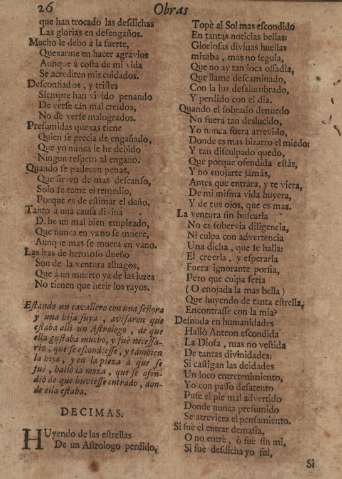 26
Obras
que han trocado las desdichas
Las glorias en desengaños.
Mucho le debo à la suerte,
Quexarme en hacer agravios
Aunque à costa de mi vida
Se acrediten mis cuidados.
Desconfiados, y tristes
Siempre han vivido penando
De verse tan mal creidos,
No de verse malogrados.
Presumidas quexas tiene
Quien se precia de engañado,
Que yo nunca le he debido
Ningun respeto al engaño.
Quando se padecen penas,
Que sirven de mas descanso,
Solo se teme el remedio,
Porque es de estimar el daño.
Tanto à una causa divina
Debe un mal bien empleado,
Que nunca en vano se muere,
Aunque mas se muera en vano.
Las iras de hermoso dueño
Son de la ventura alhagos,
Que à un muerto va de las luzes
No tienen que herir los rayos.
Estando un cavallero con una señora
y una hija suya, avisaron que
estaba alli un Astrologo, de que
ella gustaba mucho, y fue necessa-
rio, que se escondiesse, y tambien
la hija, y en la pieza à que se
fue, hallò la moza, que se ofen-
diò de que huviesse entrado, don-
de ella estaba.
DECIMAS.
HUyendo de las estrellas
De un Astrologo perdido,
Topè al Sol mas escondido
En tantas noticias bellas:
Gloriosas divinas huellas
miraba, mas no seguia,
Que no ay tan loca ossadìa,
Que llame descaminado,
Con la luz desalumbrado,
Y perdido con el dia.
Quando el sobrado denuedo
No fuera tan deslucido,
Yo nunca fuera atrevido,
Donde es mas bizarro el miedo:
Y tan disculpado quedo,
Que porque ofendida estàs,
Y no enojarte jamàs,
Antes que entràra, y te viera,
De mi misma vida huyera,
Y de tus ojos, que es mas.
La ventura sin buscarla
No es sobervia diligencia,
Ni culpa con advertencia
Una dicha, que se halla:
El creerla, y esperarla
Fuera ignorante porfia,
Pero que culpa seria
(O enojada la mas bella)
Que huyendo de tanta estrella,
Encontrasse con la mia?
Desnuda en humanidades
Hallò Anteon escondida
La Diosa, mas no vestida
De tantas divinidades:
Si castigan las deidades
Un loco entretenimiento,
Yo con passo desatento
Puse el pie mal advertido
Donde nunca presumido
Se atreviera el pensamiento.
Si fue el entrar demasìa,
O no entrè, ò fue sin mi,
Si fue desdicha yo fui,
Si